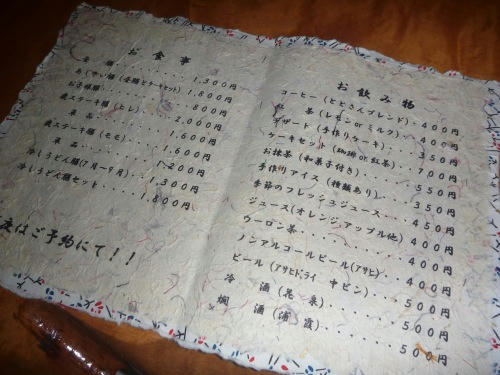 お食事
膳・・・・・・・1,300円
(昼膳とケーキセット)1,800円
お子様膳・・・・・・800円
鹿ステーキ膳(ヒレ)・・・2,000円
単品・・・・・・1,600円
鹿ステーキ膳(モモ)・・・1,600円
単品・・・・・・1,200円
冷しうどん膳(7月~9月)・・1,300円
冷しうどん膳セット・・・・1,800円
夜はご予約にて!!
お飲み物
コーヒー(ととさんブレンド)・400円
紅茶(レモンorミルク)・・400円
デザート(手作りケーキ)・・350円
ケーキセット(珈琲or紅茶)・・700円
お抹茶(和菓子付き)・・・550円
手作りアイス(種類あり)・・350円
季節のフレッシュジュース・・・450円
ジュース(オレンジ,アップル他)400円
ウーロン茶・・・・・・・400円
ノンアルコールビール(アサヒ)・・400円
ビール(アサヒドライ 中ビン)・・500円
冷酒(花泉)・・・・・500円
燗酒(浦霞)・・・・・500円